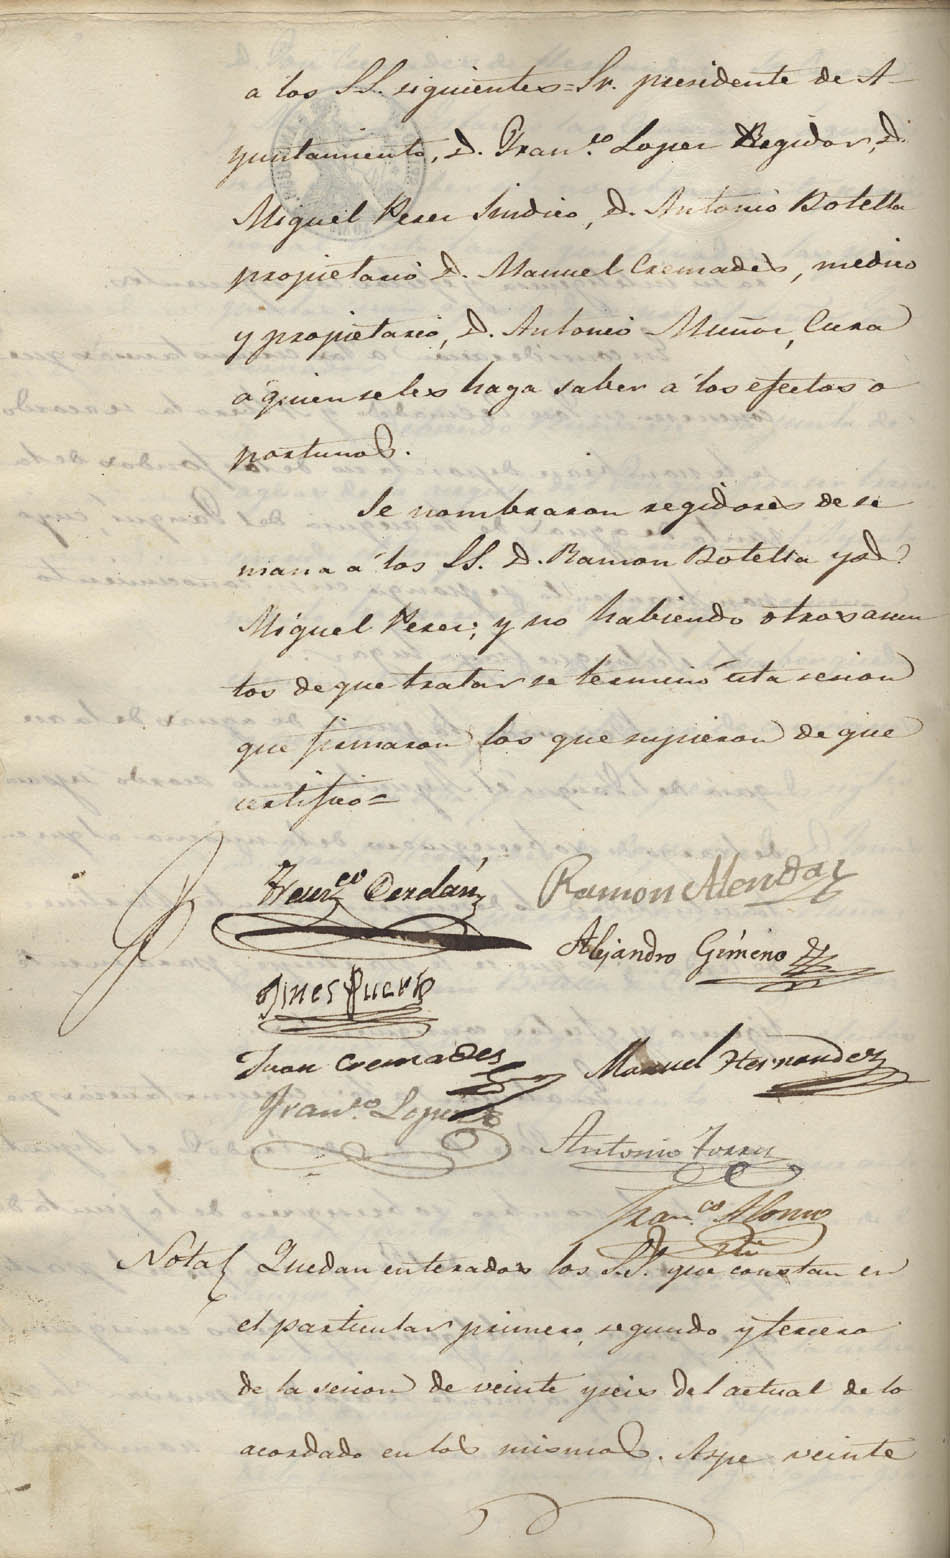 a los S.S. siguientes = Sr. presidente de A-
yuntamiento, D. Fran.co Lopez Regidor, D.
Miguel Perez Sindico, D. Antonio Botella
propietario D. Manuel Cremades, medico
y propietario, D. Antonio Muñoz, Cura
a quienseles haga saber a los efectos o
portunos.
Se nombraron regidores de se
mana á los SS. D. Ramon Botella y D.
Miguel Perez; y no habiendo otros asun
tos de que tratar se terminó esta sesion
que firmaron los que supieron de que
certifico =
Fran.co Cerdán
Ramon
Alejandro Gimeno
Gines Puerto
Juan Cremades
Manuel Hernandez
Fran.co Lopez
Antonio Torres
Fran.co Alonso
Nota
Quedan enterados los S.S. que constan en
el particular primero, segundo y tercero
de la sesion de veinte y seis del actual de lo
acordado en los mismos. Aspe veinte